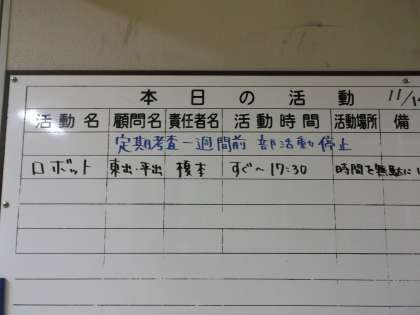 本日の活動 11/
活動名 顧問名 責任者名 活動時間 活動場所 備
定期考査一週間前 部活動停止
ロボット 東出・平出 榎本 すぐ～17:30 時間を無駄に